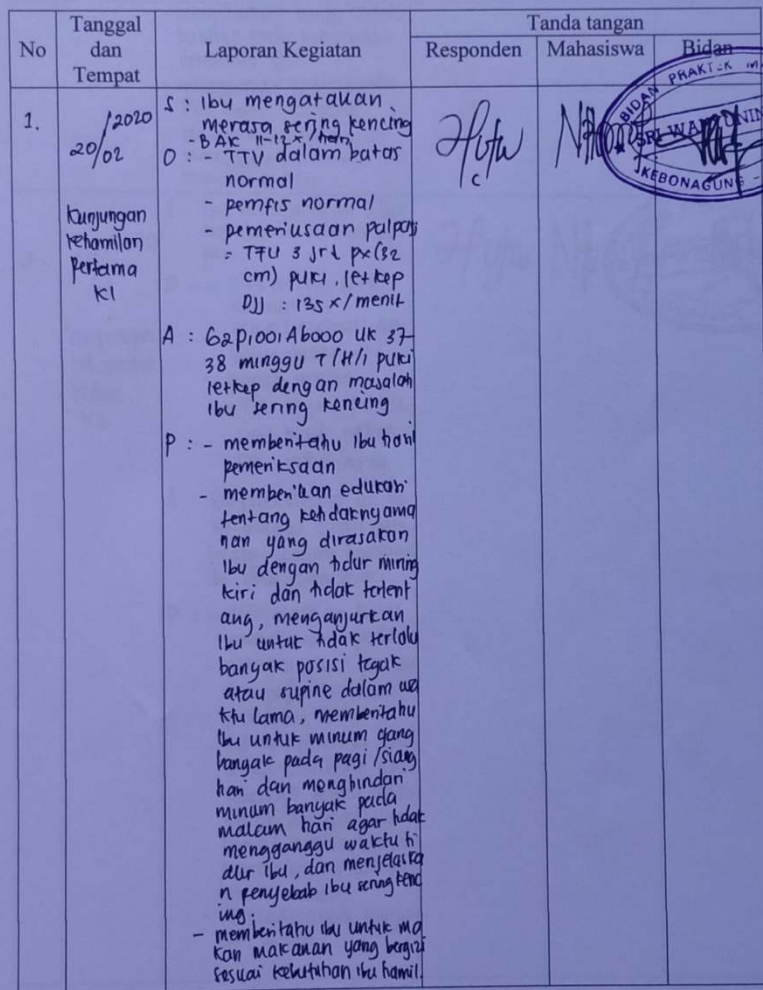 No
Tanggal
dan
Tempat
Laporan Kegiatan
Tanda tangan
Responden
Mahasiswa
Bidan
1.
20/02/2020
Kunjungan
kehamilan
Pertama
K1
S : Ibu mengatakan
merasa sering kencing
- BAK 11-12x/hari
O : - TTV dalam batas
normal
- pemfis normal
- pemeriksaan palpasi
= TFU 3 jrd px (32
cm) puki, letkep
DJJ : 135 x/menit
A : G2P1001Ab000 UK 37-
38 minggu T/H/I puki
letkep dengan masalah
ibu sering kencing
P : - memberitahu ibu hasil
pemeriksaan
- memberikan edukasi
tentang ketidaknyama
nan yang dirasakan
ibu dengan tidur miring
kiri dan tidak telent
ang, menganjurkan
ibu untuk tidak terlalu
banyak posisi tegak
atau supine dalam wa
ktu lama, memberitahu
ibu untuk minum yang
banyak pada pagi/siang
hari dan menghindari
minum banyak pada
malam hari agar tidak
mengganggu waktu ti
dur ibu, dan menjelaska
n penyebab ibu sering kenc
ing.
- memberitahu ibu untuk ma
kan makanan yang bergizi
sesuai kebutuhan ibu hamil.
BIDAN PRAKTEK
SRI
KEBONAGUNG -